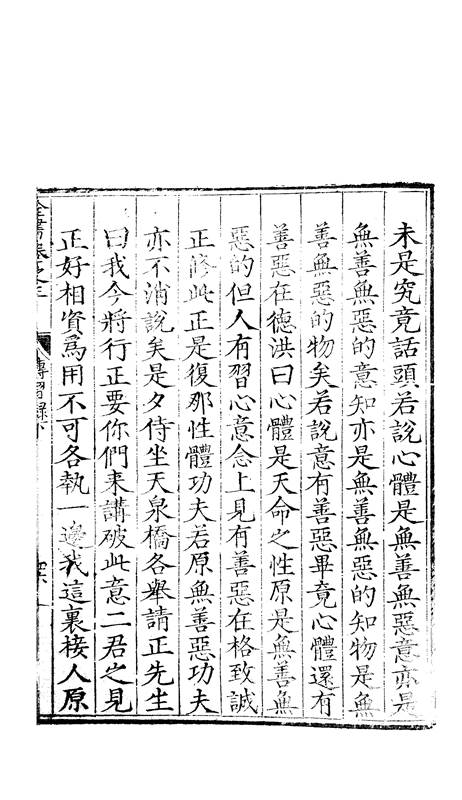 未是究竟話頭若說心體是無善無惡意亦是
無善無惡的意知亦是無善無惡的知物是無
善無惡的物矣若說意有善惡畢竟心體還有
善惡在德洪曰心體是天命之性原是無善無
惡的但人有習心意念上見有善惡在格致誠
正修此正是復那性體功夫若原無善惡功夫
亦不消說矣是夕侍坐天泉橋各舉請正先生
曰我今將行正要你們來講破此意二君之見
正好相資為用不可各執一邊我這裏接人原
傳習錄下